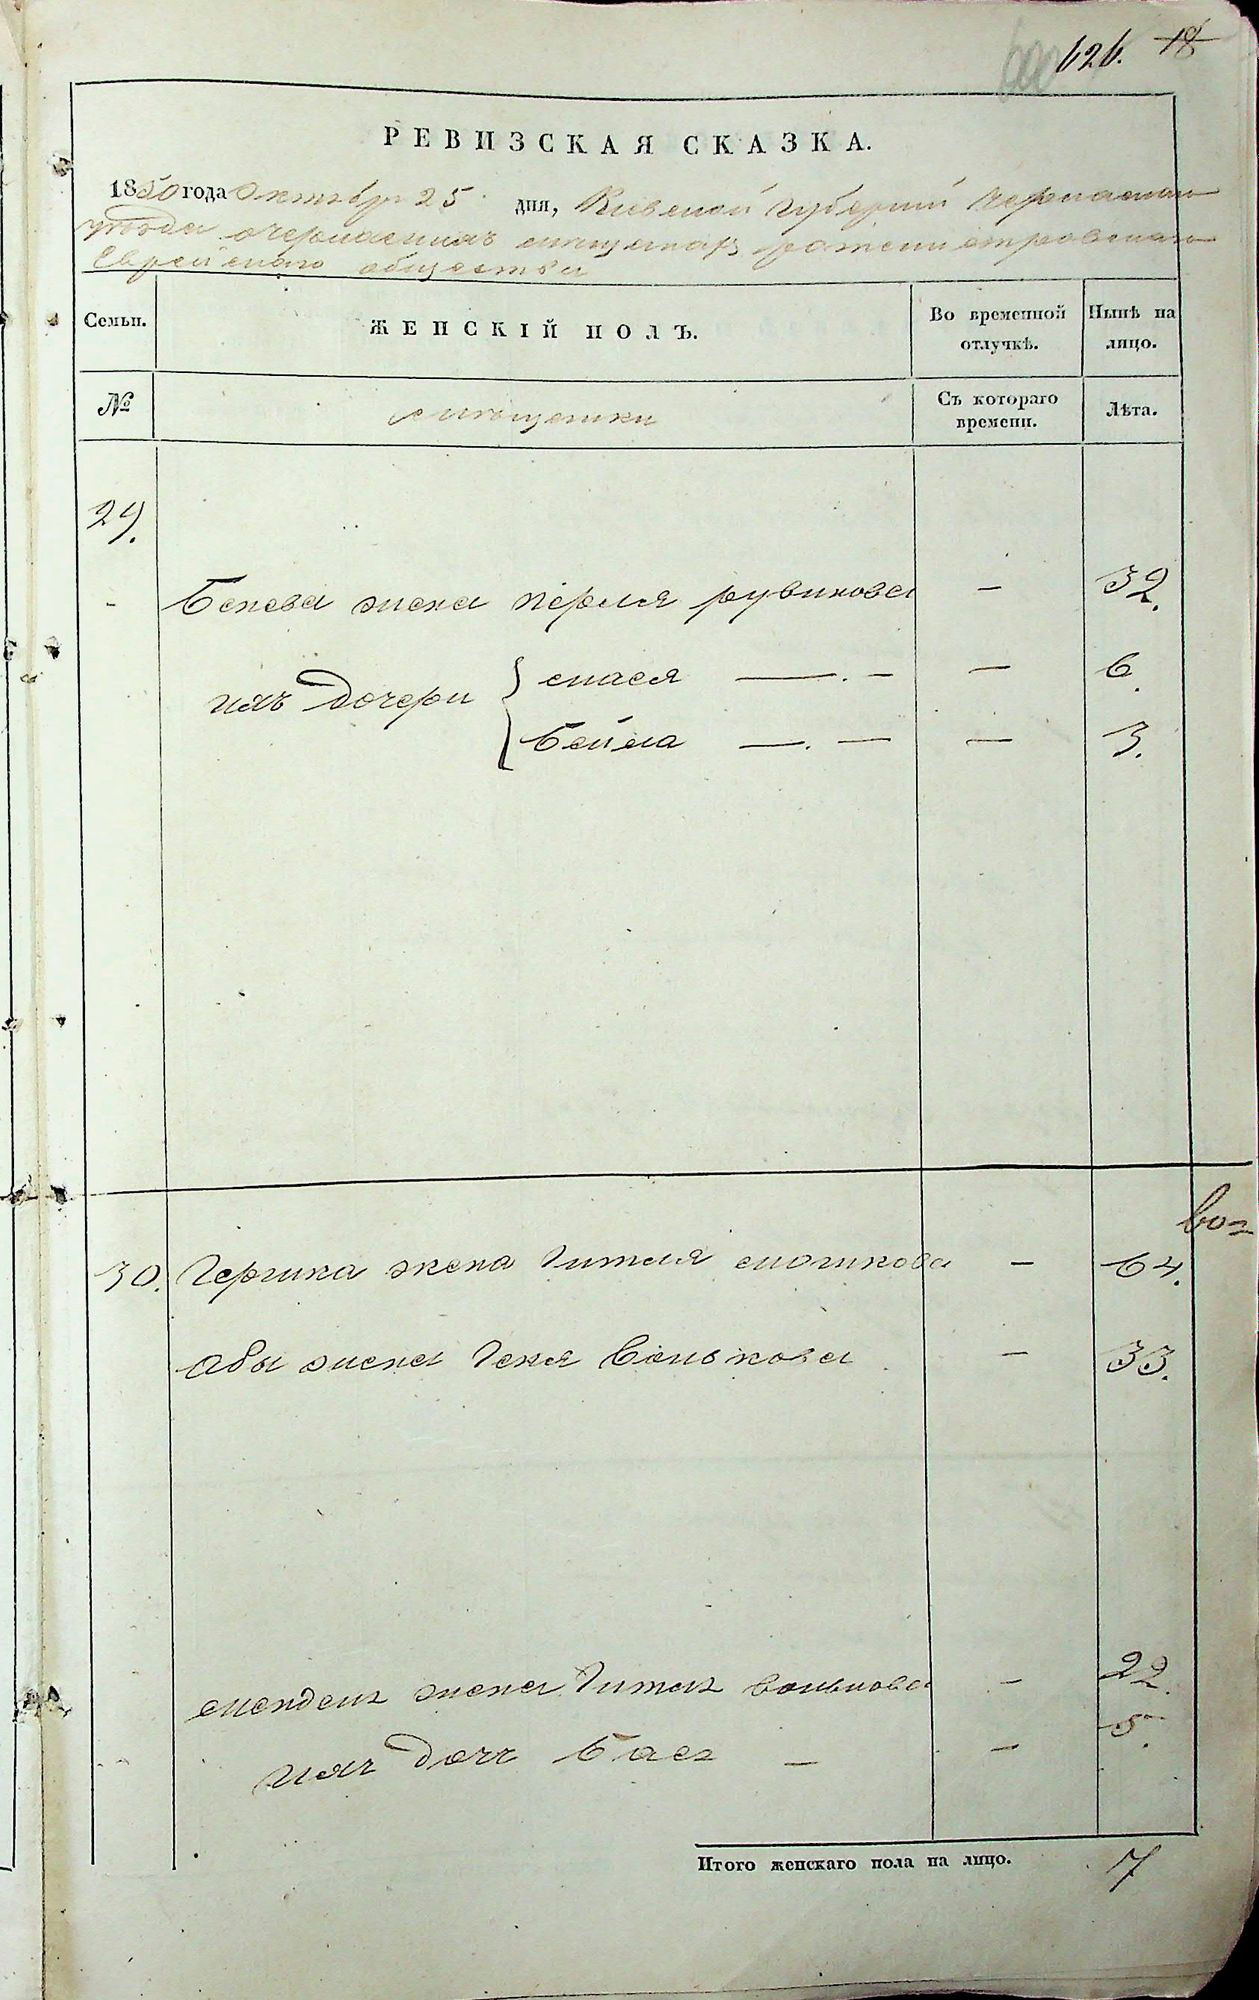 626. 18
РЕВИЗСКАЯ СКАЗКА.
1850 года Октября 25 дня, Киевской Губернии Черкаскаго
уезда
Еврейскаго общества
Семьи. ЖЕНСКІЙ ПОЛЪ. Во временной отлучкѣ. Нынѣ на лицо.
№ мещанки Съ котораго времени. Лѣта.
29.
- жена Перля рувинова — 32.
ихъ дочери { — . — — 6.
Бейла — . — — 3.
30. Гершка жена Гитля мошкова — 64.
Абы жена Геня Волькова — 33.
менделя жена Гитля волькова — 22.
ихъ дочь Бася — — 5.
Итого женскаго пола на лицо. 7